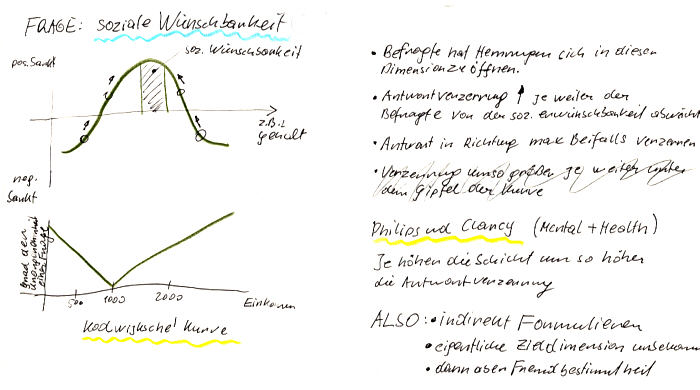 FRAGE: soziale Wünschbarkeit
soz. Wünschbarkeit
pos. Sankt
z.B.:
Gehalt
neg.
Sankt
Grad der
einer Frage
500 1000 2000 Einkommen
Kurve
• Befragte hat Hemmungen sich in dieser
Dimension zu öffnen.
• Antwortverzerrung ↑ je weiter der
Befragte von der soz. erwünschbarkeit abweicht
• Antwort in Richtung max Beifalls verzerren
• Verzerrung umso größer je weiter unter
dem Gipfel der Kurve
Philips und Clancy (Mental + Health)
Je höher die Schicht um so höher
die Antwortverzerrung
ALSO: • indirekt Formulieren
• eigentliche Zieldimension unbekannt
• dann aber Fremdbestimmtheit